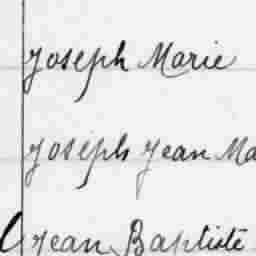 Joseph Marie
Joseph Jean Ma
Jean Baptiste